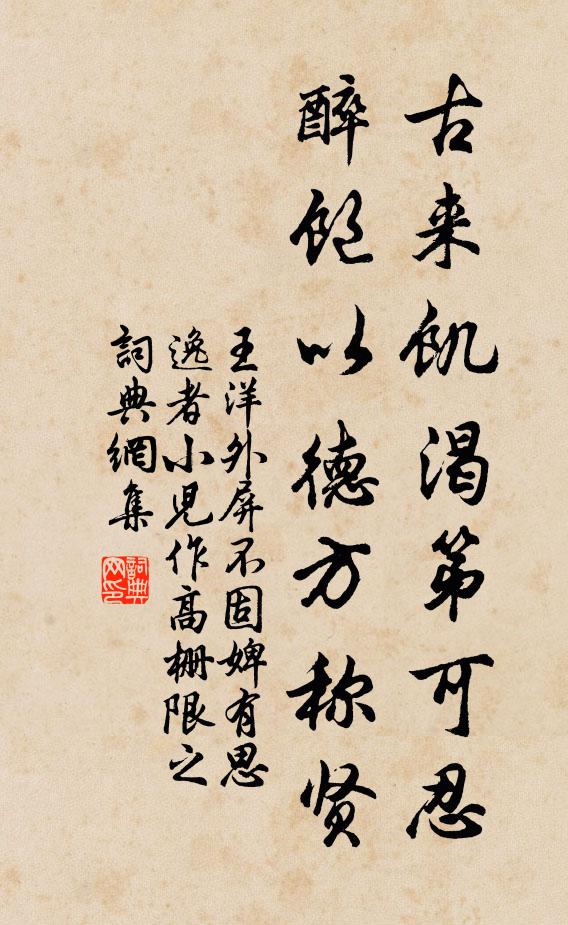 古来飢渴第可忍
醉飽以德方称贤
王洋外屏不固婢有思
逸者小児作高栅限之
詞典網集
詞典網印